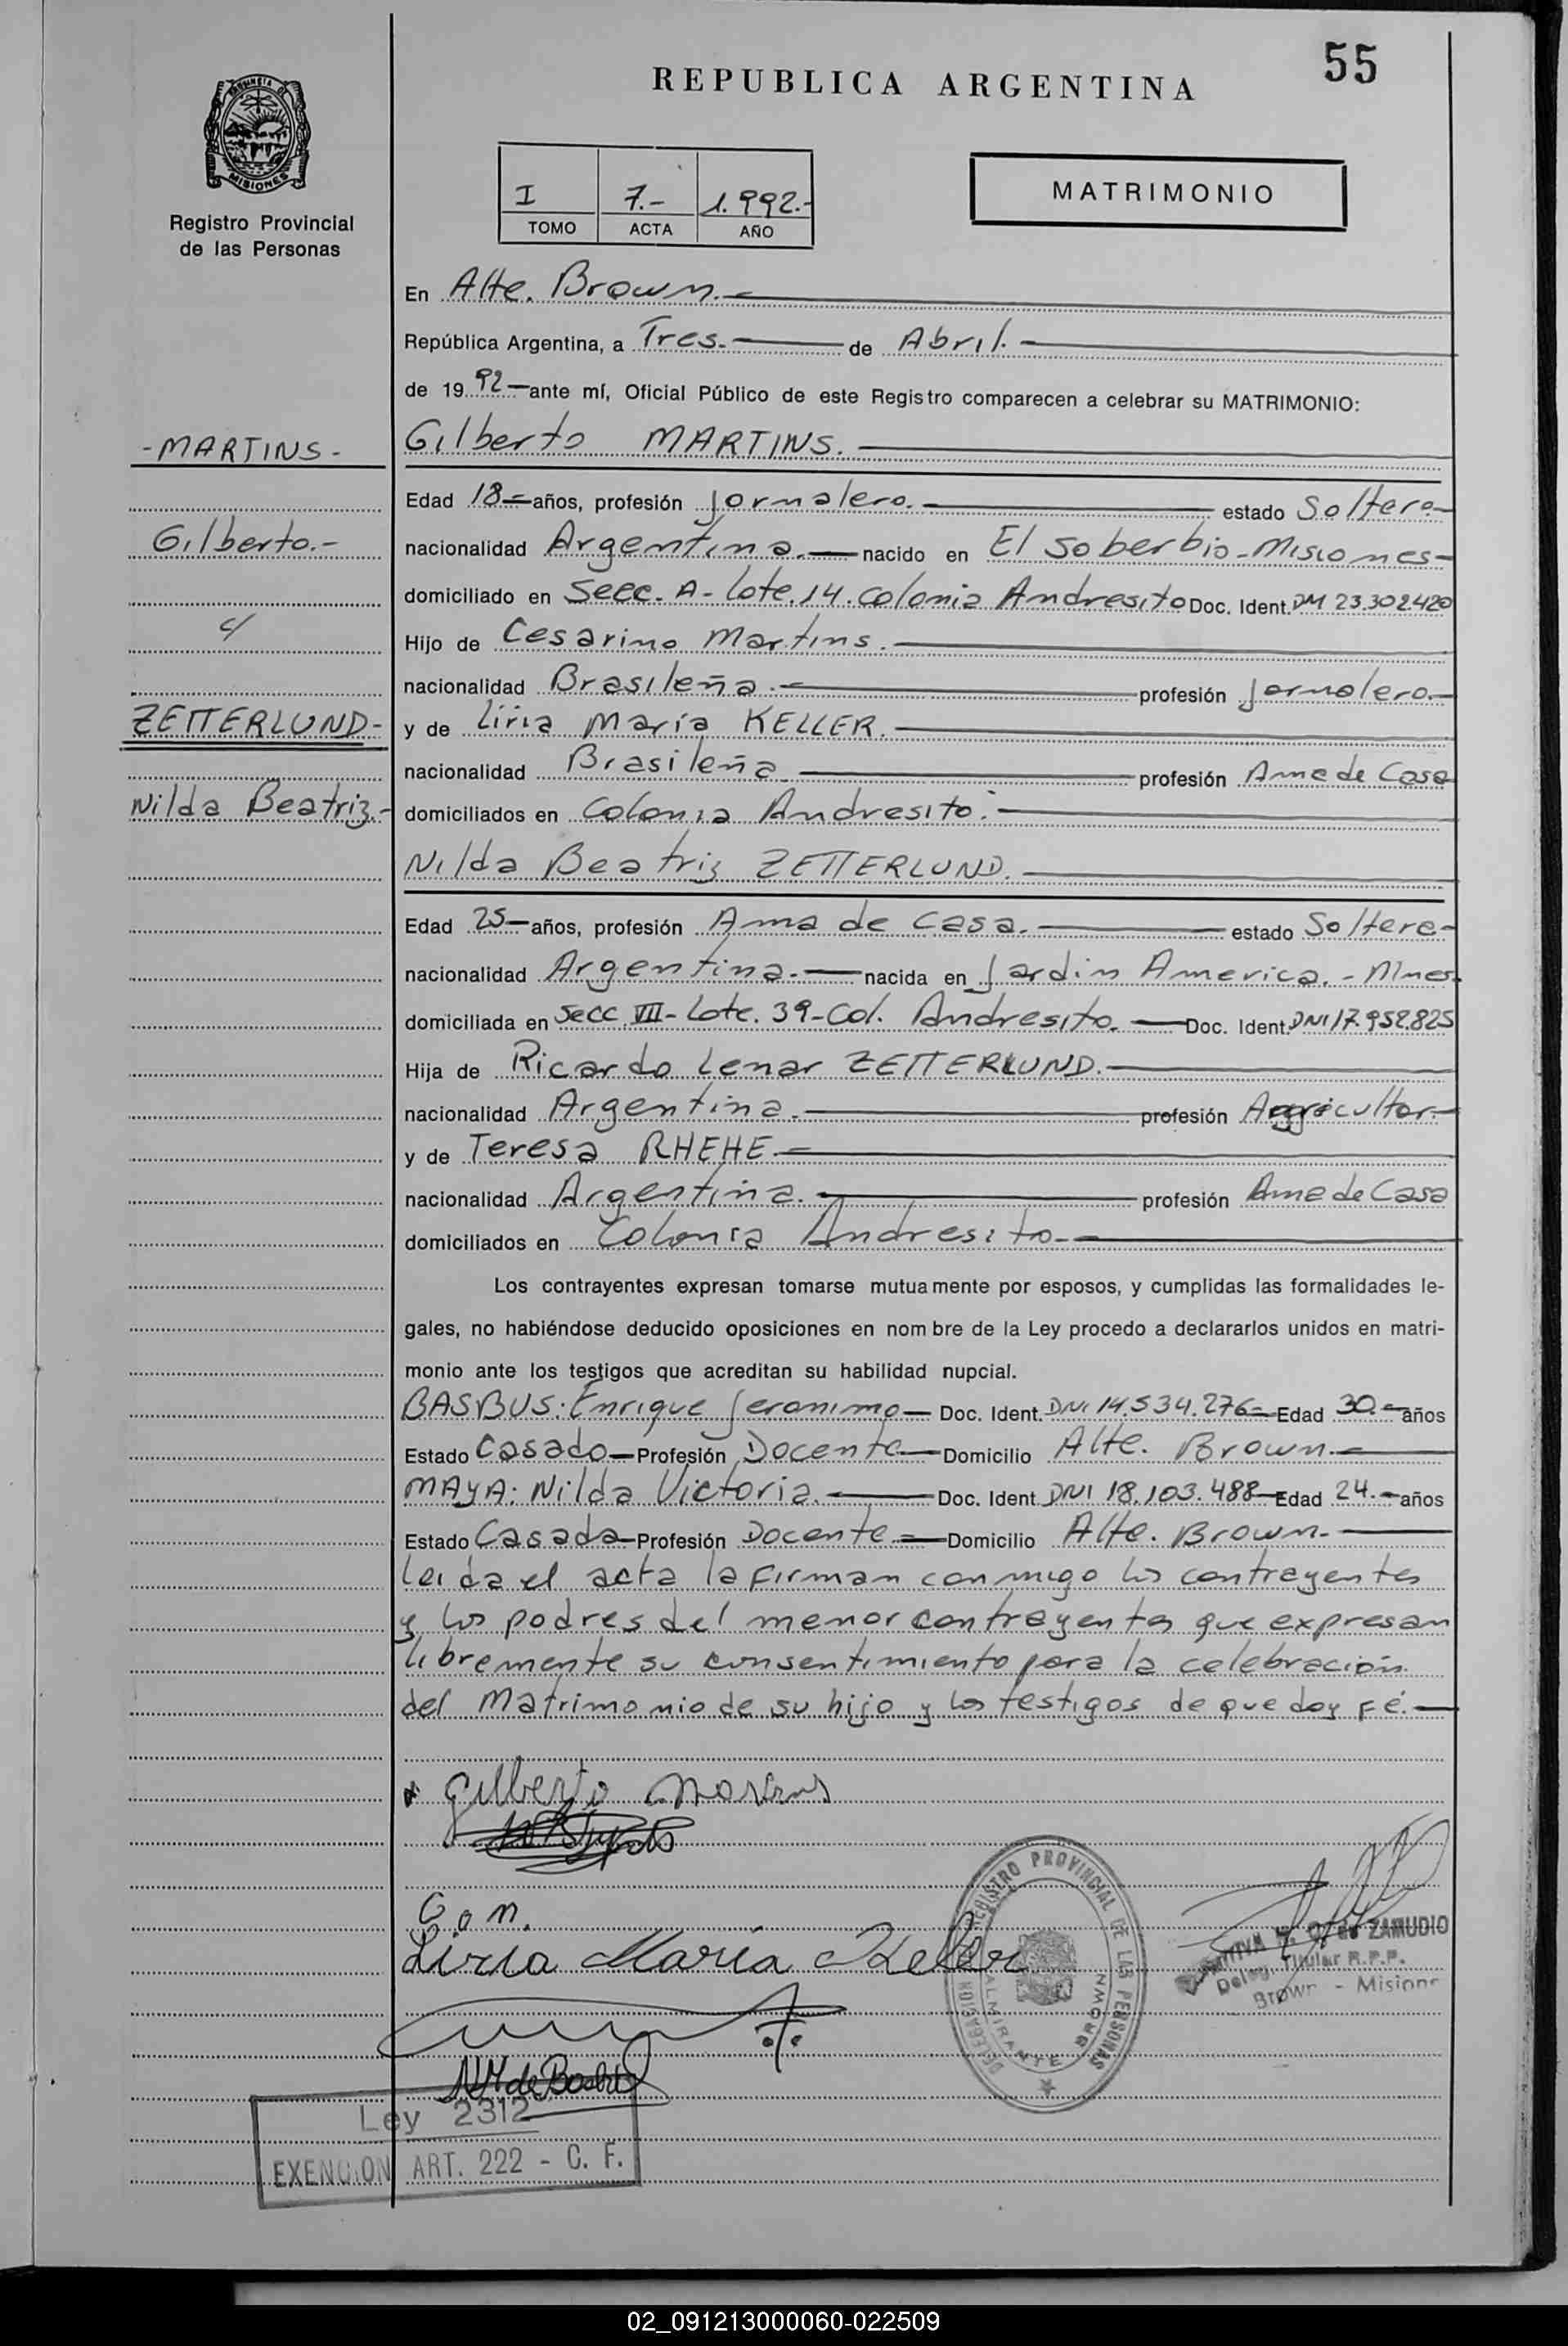 55
REPUBLICA ARGENTINA
PROVINCIA DE
MISIONES
Registro Provincial
de las Personas
I 7.- 1.992.-
TOMO ACTA AÑO
MATRIMONIO
En Alte. Brown.-
República Argentina, a Tres.- de Abril.-
de 19 92- ante mí, Oficial Público de este Registro comparecen a celebrar su MATRIMONIO:
-MARTINS-
Gilberto MARTINS.
Edad 18 años, profesión Jornalero.- estado Soltero-
Gilberto.-
nacionalidad Argentina.- nacido en El Soberbio-Misiones-
domiciliado en Secc. A- Lote.14.Colonia Andresito Doc. Ident. DNI 23.302.420
c/
Hijo de Cesarino Martins.
nacionalidad Brasileña.- profesión Jornalero.-
ZETTERLUND-
y de Liria María KELLER.
nacionalidad Brasileña profesión Ama de Casa
Nilda Beatriz.-
domiciliados en Colonia Andresito.-
Nilda Beatriz ZETTERLUND.
Edad 25- años, profesión Ama de Casa.- estado Soltera-
nacionalidad Argentina.- nacida en Jardin America.-Mnes.
domiciliada en Secc. VII- Lote. 39-Col. Andresito.- Doc. Ident. DNI 17.952.825
Hija de Ricardo Lenar ZETTERLUND.-
nacionalidad Argentina.- profesión Agricultor.-
y de Teresa RHEHE.-
nacionalidad Argentina.- profesión Ama de Casa
domiciliados en Colonia Andresito.-
Los contrayentes expresan tomarse mutuamente por esposos, y cumplidas las formalidades le-
gales, no habiéndose deducido oposiciones en nombre de la Ley procedo a declararlos unidos en matri-
monio ante los testigos que acreditan su habilidad nupcial.
BASBUS: Enrique Jeronimo- Doc. Ident. DNI 14.534.276- Edad 30.- años
Estado Casado- Profesión Docente- Domicilio Alte. Brown.-
MAYA: Nilda Victoria.- Doc. Ident DNI 18.103.488- Edad 24.- años
Estado Casada- Profesión Docente.- Domicilio Alte. Brown.-
Leida el acta la firman conmigo los contrayentes
y los padres del menor contrayentes que expresan
libremente su consentimiento para la celebración
del Matrimonio de su hijo y los testigos de que doy fé.-
Gilberto Martins
C. o m.
Liria María Keler
DELEGACION REGISTRO PROVINCIAL DE LAS PERSONAS
ALMIRANTE BROWN
ZAMUDIO
Deleg. Titular R.P.P.
Brown - Misiones
Ley 2312
EXENCION ART. 222 - C. F.
02_091213000060-022509